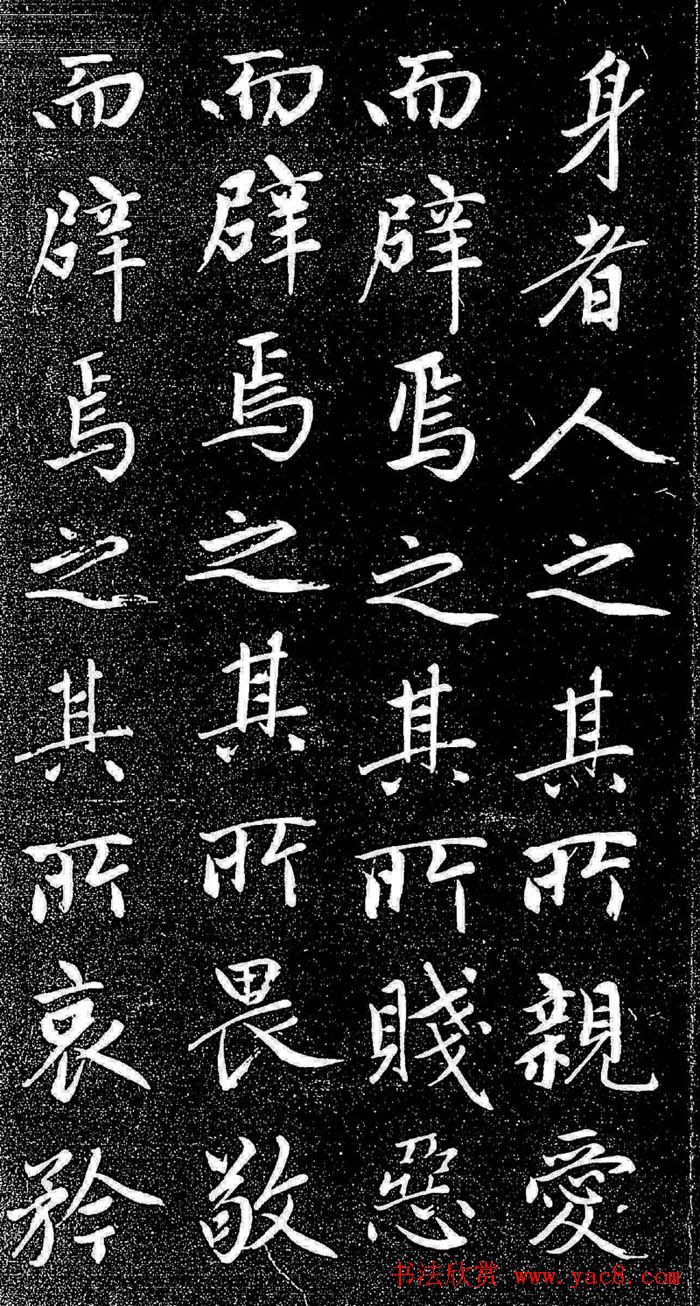 身者人之其所親愛
而辟焉之其所賤惡
而辟焉之其所畏敬
而辟焉之其所哀矜
书法欣赏 www.yac8.com